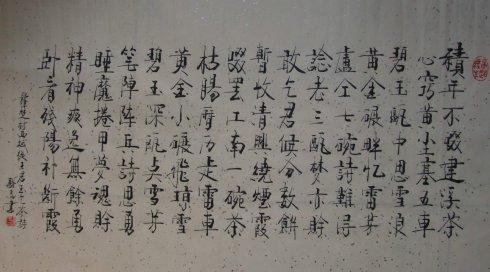 積年不啜建溪茶
心竅黃塵塞五車
碧玉甌中思雪浪
黃金碾畔憶雷芽
盧仝七碗詩難得
諗老三甌夢亦賒
敢乞君侯分數餅
暫教清興繞煙霞
啜罷江南一碗茶
枯腸歷歷走雷車
黃金小碾飛瓊雪
碧玉深甌點雪芽
筆陣陣兵詩思勇
睡魔捲甲夢魂賒
精神爽逸無餘事
臥看殘陽補斷霞
楚材西域從王君玉乞茶詩